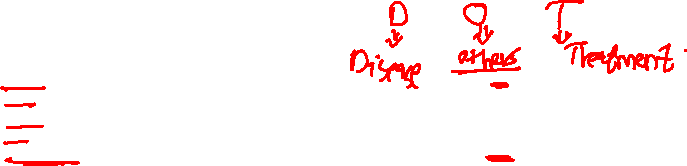 D O T
Disease others Treatment